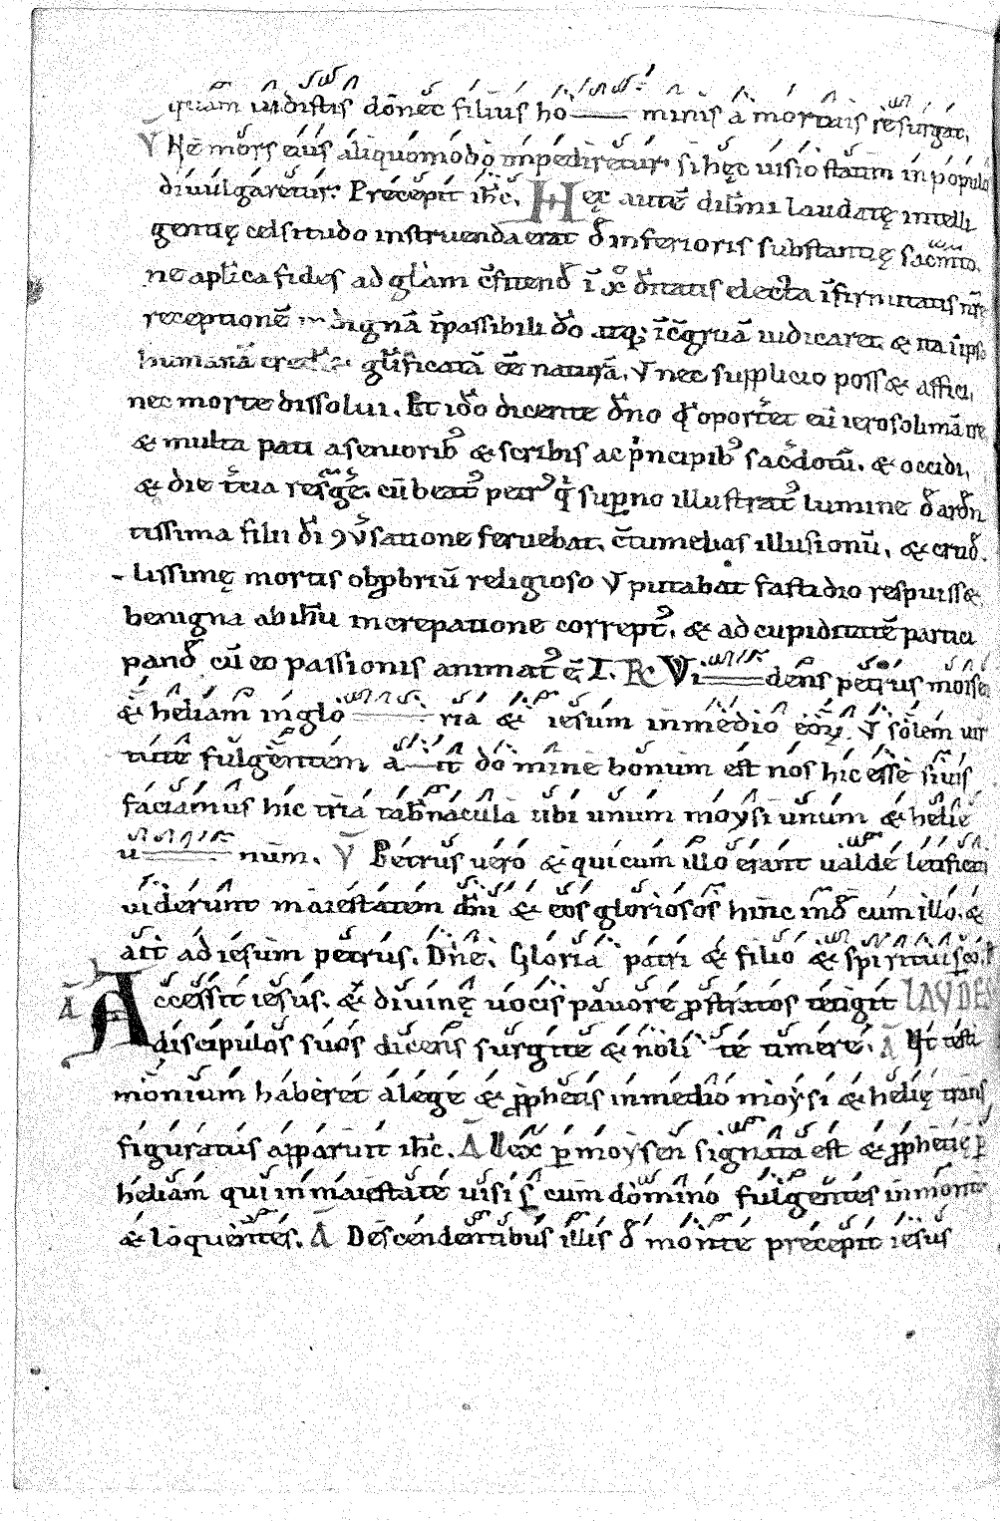 quam uidistis donec filius ho minis a mortuis resurgat.
V Ne mors eius aliquomodo impediretur. si hęc uisio statim in popula
diuulgaretur. Precepit ihc̄. Hęc autē dilm̄i laudatę intelli
gentię celsitudo instruenda erat d̄ inferioris substantię sacmt̄o.
ne aplica fides ad glām c̄fitend̄ ī xp̄o d̄itatis electa īfirmitatis nr̄e
receptionē indignā īpassibili dō atq; īc̄gruā iudicaret. & ita īipso
humanā cred glīficatā eē naturā, ut nec supplicio poss& affici,
nec morte dissolui. Et idō dicente dn̄o qd̄ oportet eū ierosolimā ire
& multa pati a seniorib; & scribis ac p̄ncipib; sacdotū. & occidi,
& die t̄cia resḡe. cū beat' petr' q̄ supno illustrat' lumine d̄ ardn̄
tissima filii dī 9ūsatione feruebat. c̄tumelias illusionū, & crud̄
lissimę mortis obprbriū religioso ut putabat fastidio respuiss&.
benigna ab ihū increpatione correpť, & ad cupiditatē partici
pand̄ cū eo passionis animať ē I. R̄ Vi dens petrus moisen
& heliam in glo ria & iesum in medio eoꝝ. ut solem uir
tute fulgentem a it domine bonum est nos hic esse si uis
faciamus hic tria tabnacula tibi unum moysi unum & helię
u num. V Petrus uero & qui cum illo erant ualde letificati
uiderunt maiestatem dn̄i & eos gloriosos hinc ind̄ cum illo. &
ait ad iesum petrus. Dn̄e. Gloria patri & filio & spirituisc̄o.
A Accessit iesus. & diuinę uocis pauore pstratos tetigit LAVDES
discipulos suos dicens surgite & nolite timere. A Ut testi
monium haberet a lege & pphetis in medio moysi & helię trans
figuratus apparuit ihc̄. A Lex p moysen signata est & pphetię p
heliam qui in maiestate uisi s̄ cum domino fulgentes in monte
& loquentes. A Descendentibus illis d̄ monte precepit iesus